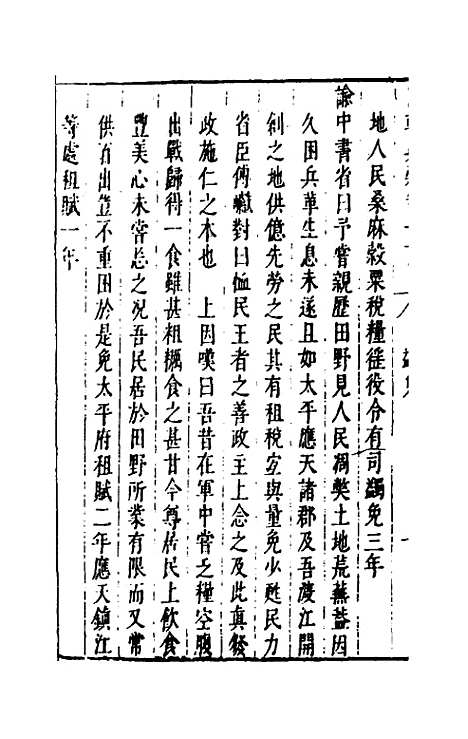 地人民桑麻穀粟稅糧徭役令有司蠲免三年
諭中書省曰予嘗親歷田野見人民凋獘土地荒蕪蓋因
久困兵革生息未遂且如太平應天諸郡乃吾渡江開
創之地供億先勞之民其有租稅宜與量免少甦民力
省臣傅瓛對曰恤民王者之善政主上念之及此真發
政施仁之本也　上因嘆曰吾昔在軍中嘗乏糧空腹
出戰歸得一食雖甚粗糲食之甚甘今尊居民上飲食
豐美心未嘗忘之况吾民居於田野所業有限而又常
供百出豈不重困於是免太平府租賦二年應天鎮江
等處租賦一年